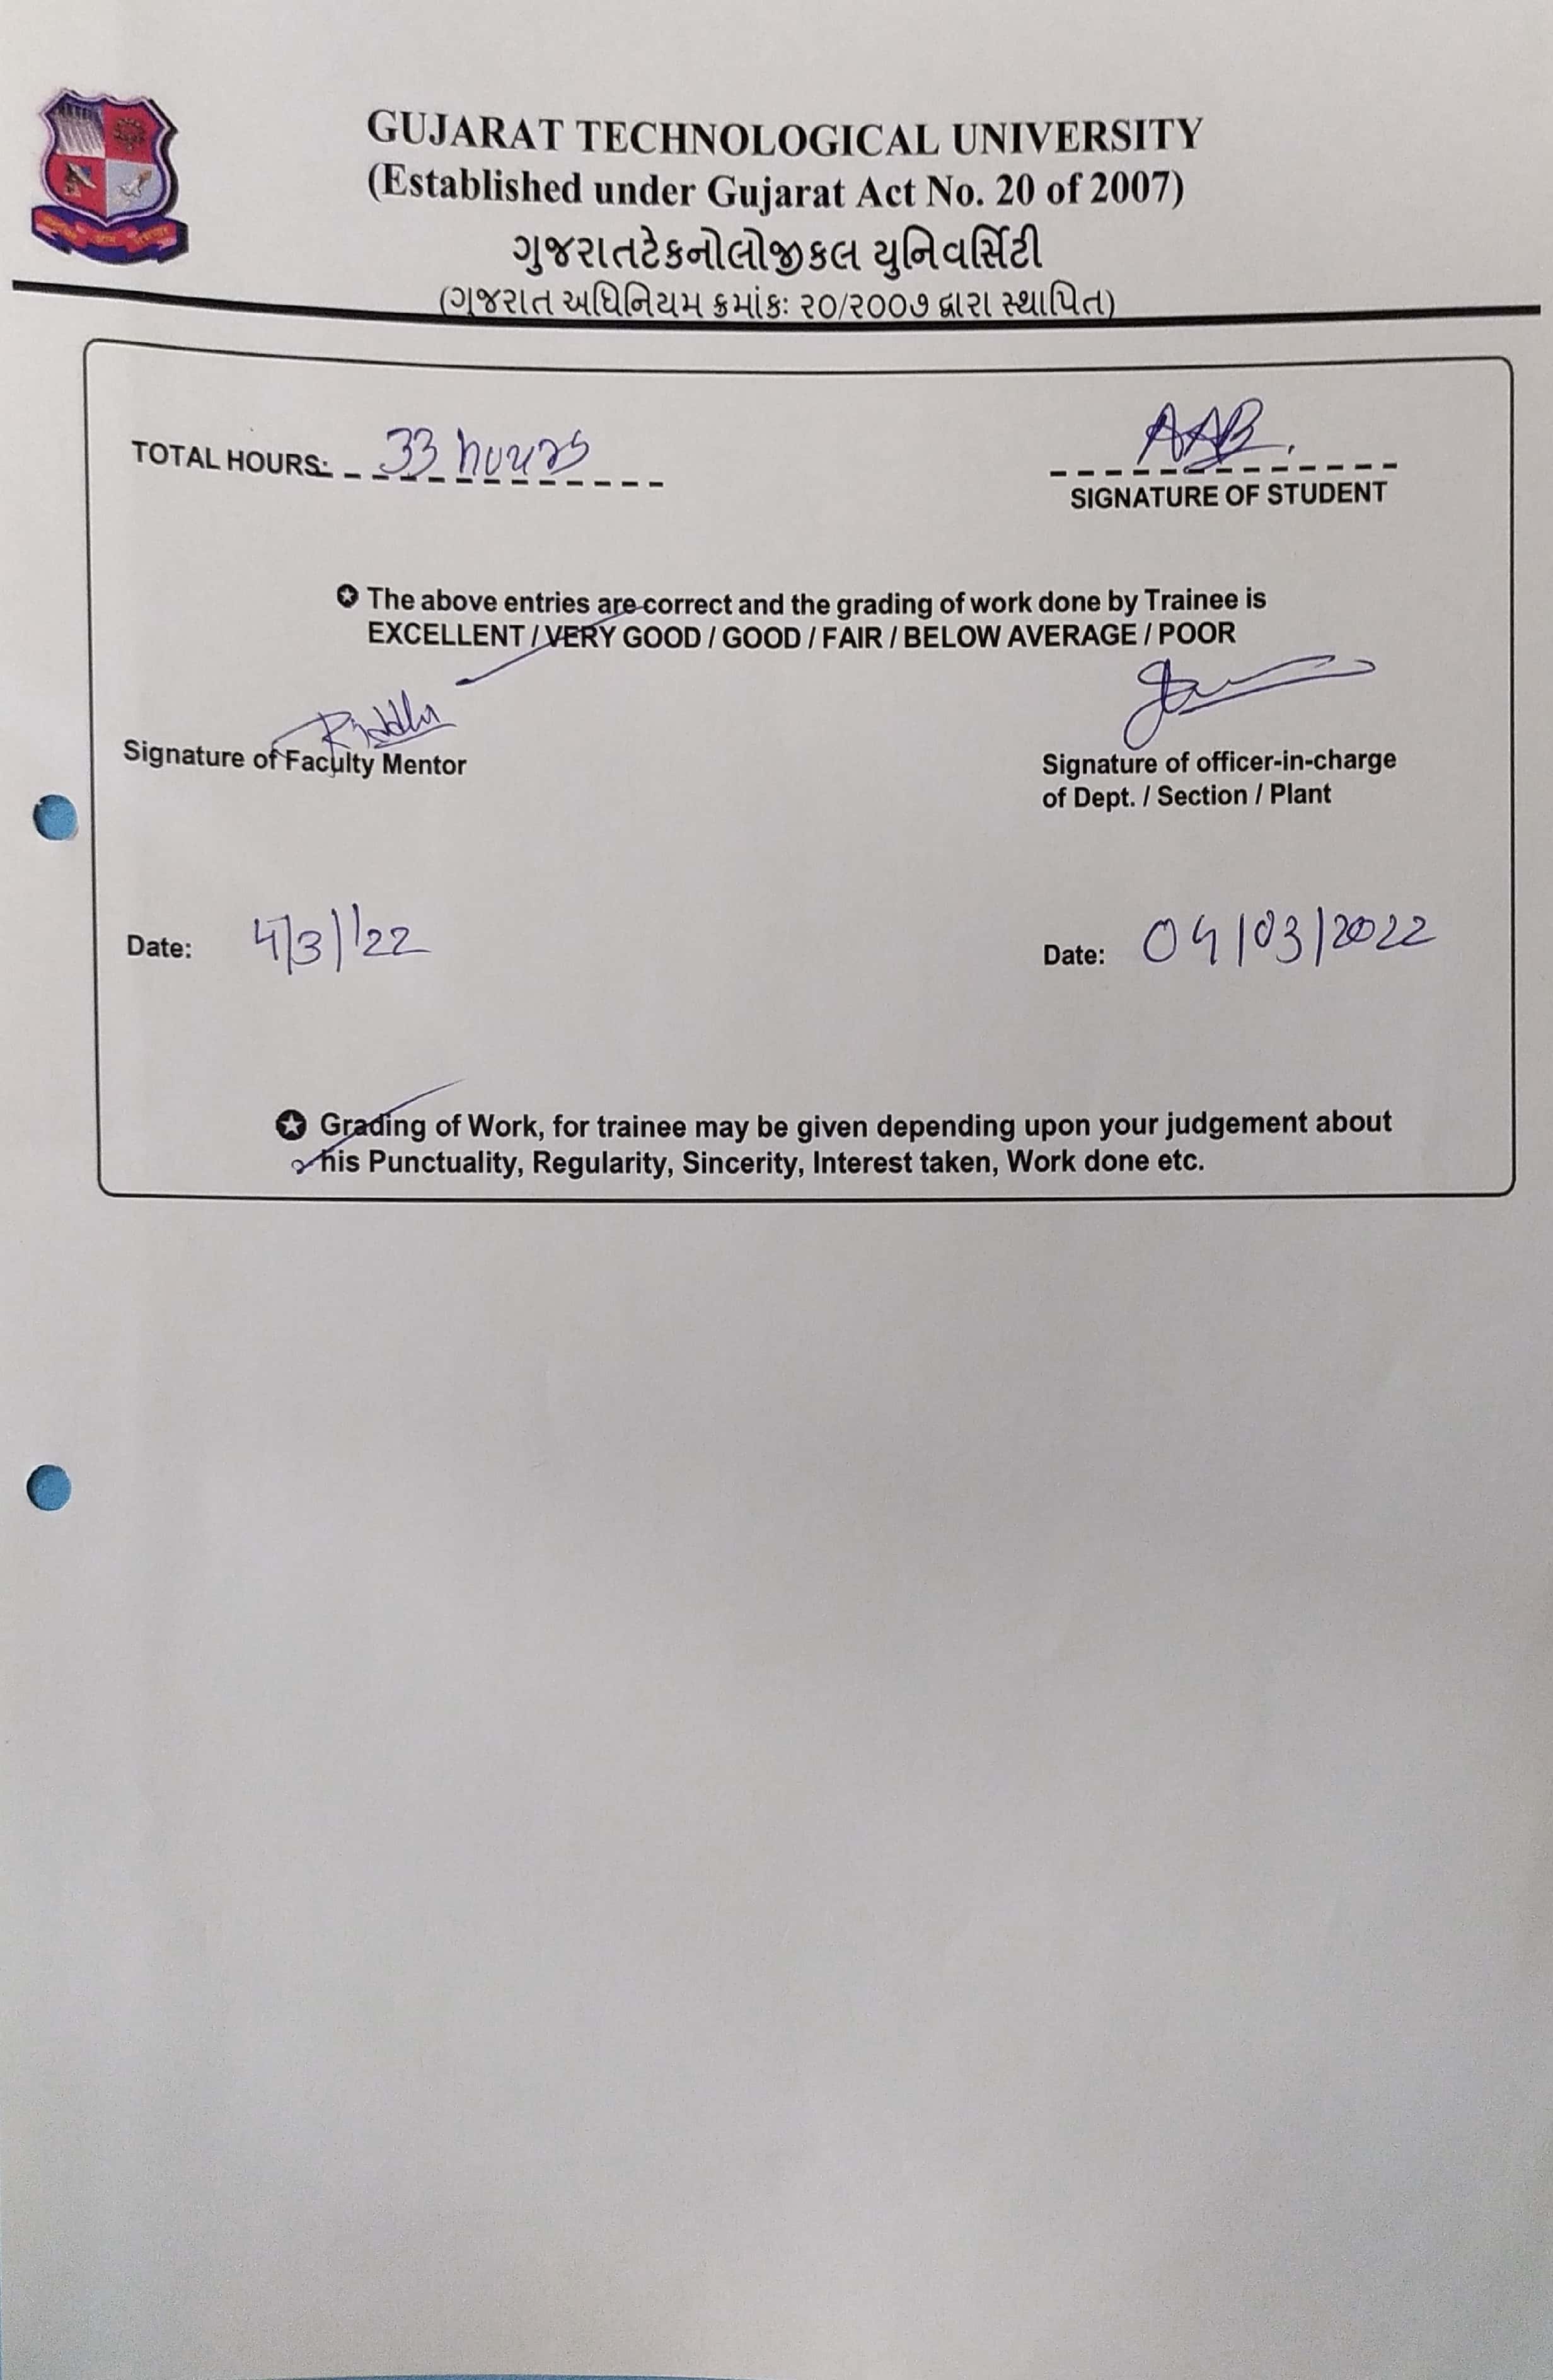 GUJARAT TECHNOLOGICAL UNIVERSITY
(Established under Gujarat Act No. 20 of 2007)
ગુજરાતટેકનોલોજીકલ યુનિવર્સિટી
(ગુજરાત અધિનિયમ ક્રમાંકઃ ૨૦/૨૦૦૭ દ્વારા સ્થાપિત)
TOTAL HOURS: 33 hours
AAB.
SIGNATURE OF STUDENT
The above entries are correct and the grading of work done by Trainee is
EXCELLENT / VERY GOOD / GOOD / FAIR / BELOW AVERAGE / POOR
Signature of Faculty Mentor
Signature of officer-in-charge
of Dept. / Section / Plant
Date: 4/3/'22
Date: 04/03/2022
Grading of Work, for trainee may be given depending upon your judgement about
his Punctuality, Regularity, Sincerity, Interest taken, Work done etc.